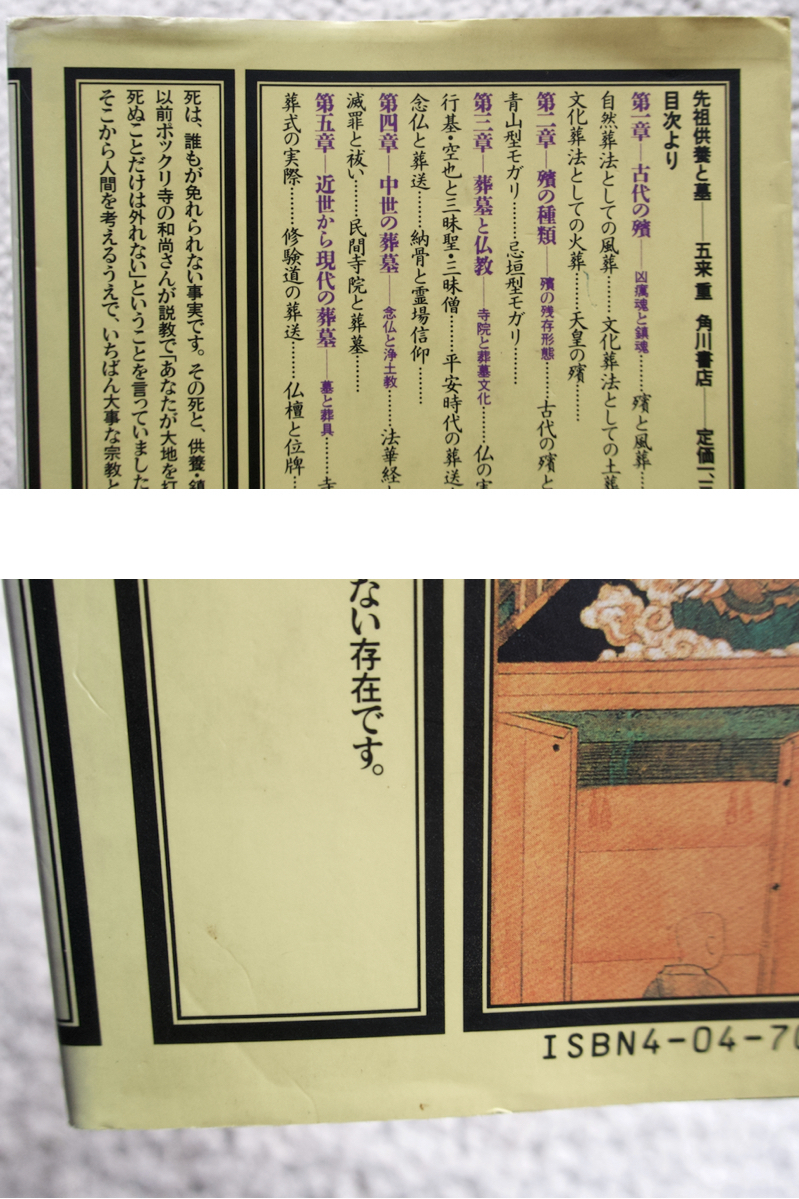 先祖供養と墓――五来 重 角川書店――定価一、三
目次より
第一章―古代の殯―凶癘魂と鎮魂……殯と風葬……
自然葬法としての風葬………文化葬法としての土葬
文化葬法としての火葬………天皇の殯………
第二章―殯の種類―殯の残存形態………古代の殯と
青山型モガリ………忌垣型モガリ………
第三章―葬墓と仏教―寺院と葬墓文化………仏の
行基・空也と三昧聖・三昧僧………平安時代の葬送
念仏と葬送………納骨と霊場信仰………
第四章―中世の葬墓―念仏と浄土教………法華経
滅罪と祓い………民間寺院と葬墓………
第五章―近世から現代の葬墓―墓と葬具………寺
葬式の実際………修験道の葬送………仏壇と位牌…
死は、誰もが免れられない事実です。その死と、供養・鎮
以前ポックリ寺の和尚さんが説教で「あなたが大地を打
死ぬことだけは外れない」ということを言っていました
そこから人間を考えるうえで、いちばん大事な宗教と
ない存在です。
ISBN4-04-70